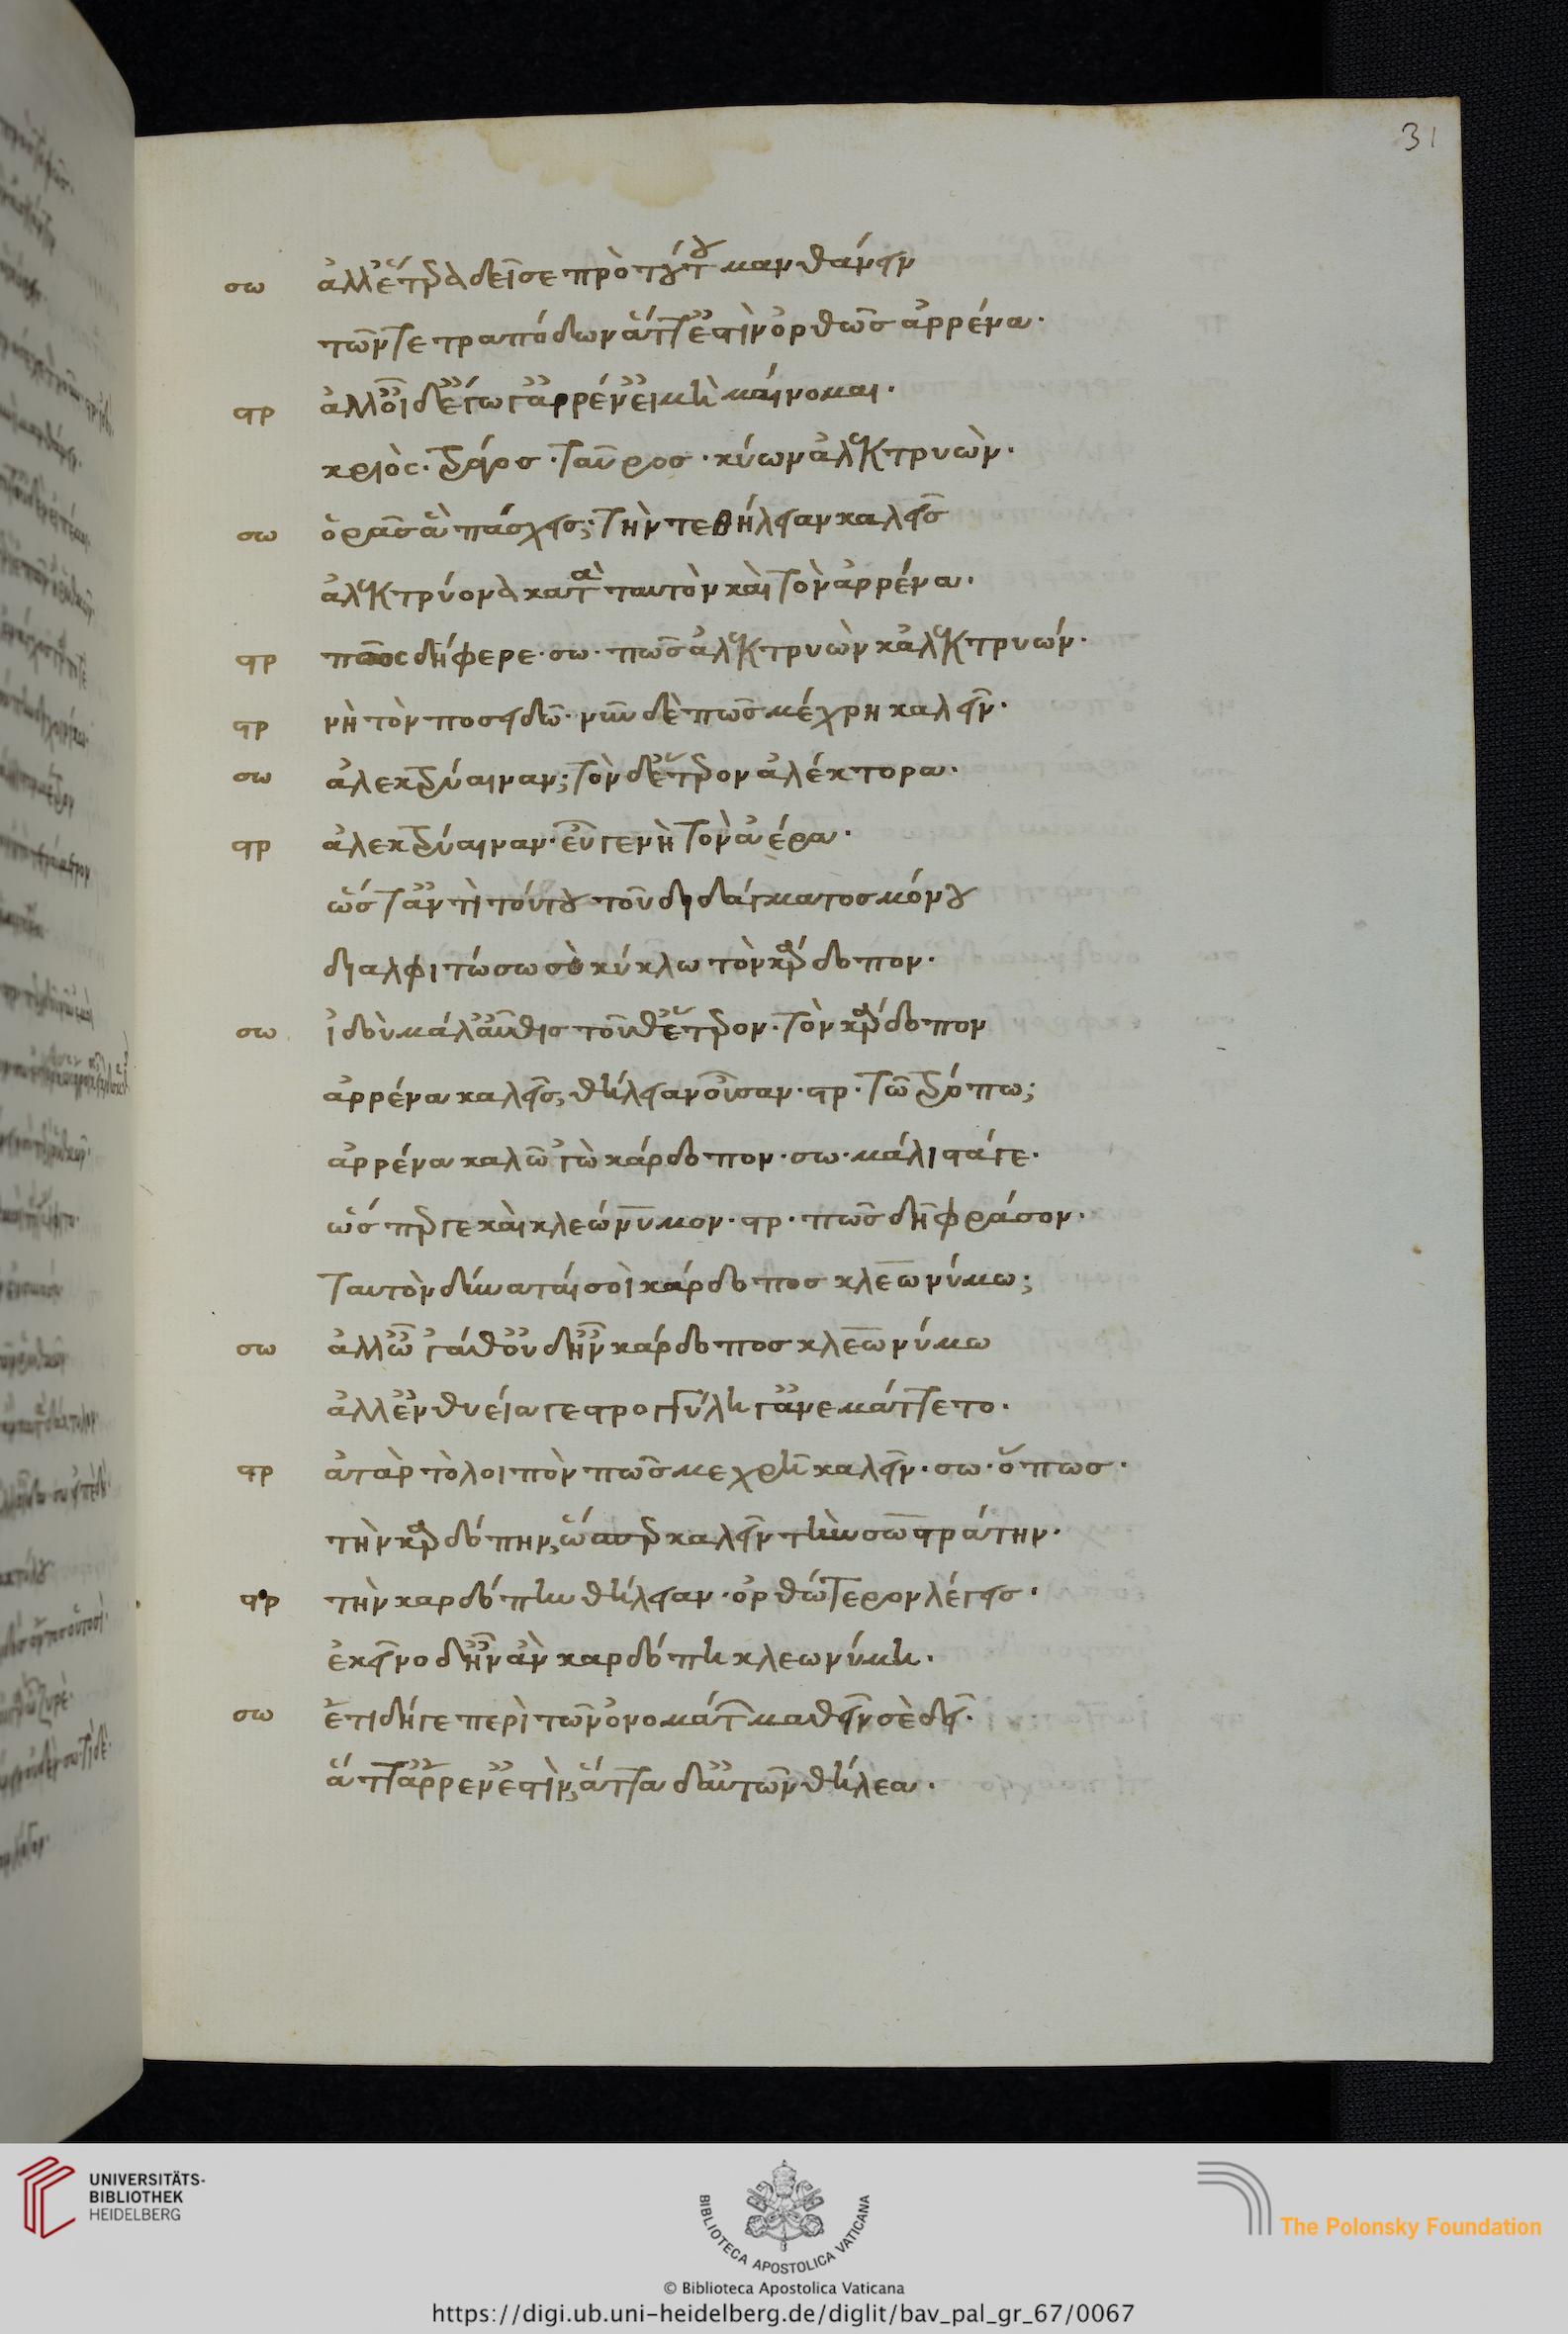 31
σω ἀλλ' ἕτερα δεῖ σε πρότερον τούτου μανθάνειν
τῶν τετραπόδων ἅττ' ἐστὶν ὀρθῶς ἀρρένα.
στρ ἀλλ' οἶδ' ἔγωγ' ἀρρέν' εἰ μὴ μαίνομαι.
κριὸς. τράγος. ταῦρος. κύων ἀλεκτρυὼν.
σω ὁρᾶς ἃ πάσχεις; τὴν τε θήλειαν καλεῖς
ἀλεκτρύονα κατὰ ταυτὸν καὶ τὸν ἀρρένα.
στρ πῶς δὴ φέρε. σω. πῶς ἀλεκτρυὼν κἀλεκτρυών.
στρ νὴ τὸν ποσειδῶ. νῦν δὲ πῶς μέ χρὴ καλεῖν.
σω ἀλεκτρύαιναν; τὸν δ' ἕτερον ἀλέκτορα.
στρ ἀλεκτρύαιναν. εὖ γε νὴ τὸν ἀέρα.
ὥστ' ἀντὶ τούτου τοῦ διδάγματος μόνου
διαλφιτώσω σὸ κύκλω τὸν κάρδοπον.
σω ἰδοὺ μάλ' αὖθις τοῦθ' ἕτερον. τὸν κάρδοπον
ἀρρένα καλεῖς, θήλειαν οὖσαν. στρ. τῶ τρόπω;
ἀρρένα καλῶ 'γὼ κάρδοπον. σω. μάλιστά γε.
ὥσπερ γε καὶ κλεώνυμον. στρ. πῶς δὴ φράσον.
ταυτὸν δύναταί σοὶ κάρδοπος κλεωνύμω;
σω ἀλλ' ὦ 'γάθ' οὐδ' ἦν κάρδοπος κλεωνύμω
ἀλλ' ἐν θυεία γε στρογγύλη γ' ἀνεμάττετο.
στρ ἀτὰρ τὸ λοιπὸν πῶς με χρὴ καλεῖν. σω. ὅπως.
τὴν καρδόπην, ὥσπερ καλεῖν τὴν σωστράτην.
στρ τὴν καρδόπην θήλειαν. ὀρθώτερον λέγεις.
ἐκεῖνο δ' ἦν ἂν καρδόπη κλεωνύμη.
σω ἔτι δή γε περὶ τῶν ὀνομάτων μαθεῖν σὲ δεῖ.
ἅττ' ἄρρεν' ἐστὶν, ἅττα δ' αὐτῶν θήλεα.
UNIVERSITÄTS-
BIBLIOTHEK
HEIDELBERG
BIBLIOTECA APOSTOLICA VATICANA
The Polonsky Foundation
© Biblioteca Apostolica Vaticana
https://digi.ub.uni-heidelberg.de/diglit/bav_pal_gr_67/0067